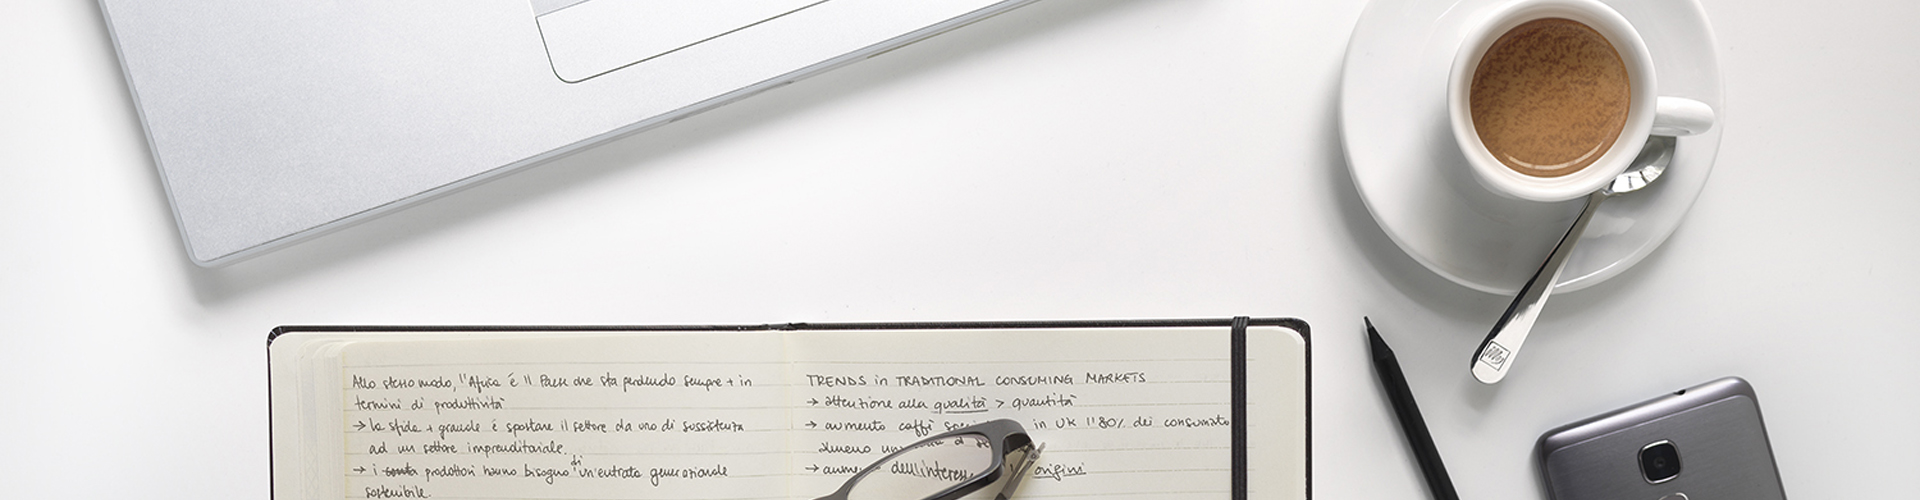 Allo stesso modo, l'Africa è il Paese che sta perdendo sempre + in
termini di produttività
→ la sfida + grande è spostare il settore da uno di sussistenza
ad un settore imprenditoriale.
→ i conta produttori hanno bisogno di un'entrata generazionale
sostenibile.
TRENDS in TRADITIONAL CONSUMING MARKETS
→ attenzione alla qualità > quantità
→ aumento caffè in UK l'80% dei consumato
almeno
→ dell'interes origini